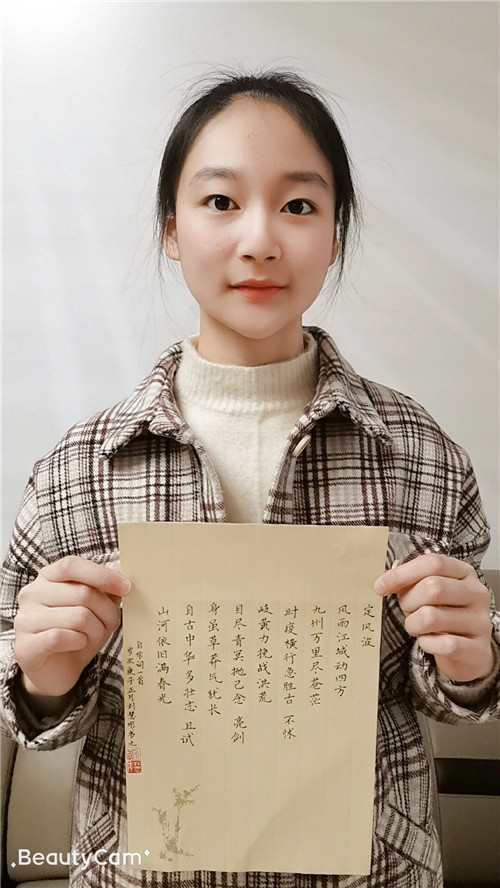 定风波
风雨江城动四方
九州万里尽苍茫
时疫横行急胜古 不怵
岐黄力挽战洪荒
目尽青冥抛己念 亮剑
身虽草莽气犹长
自古中华多壮志 且试
山河依旧满春光
自作词一首
岁次庚子正月刘慧彤书之
BeautyCam